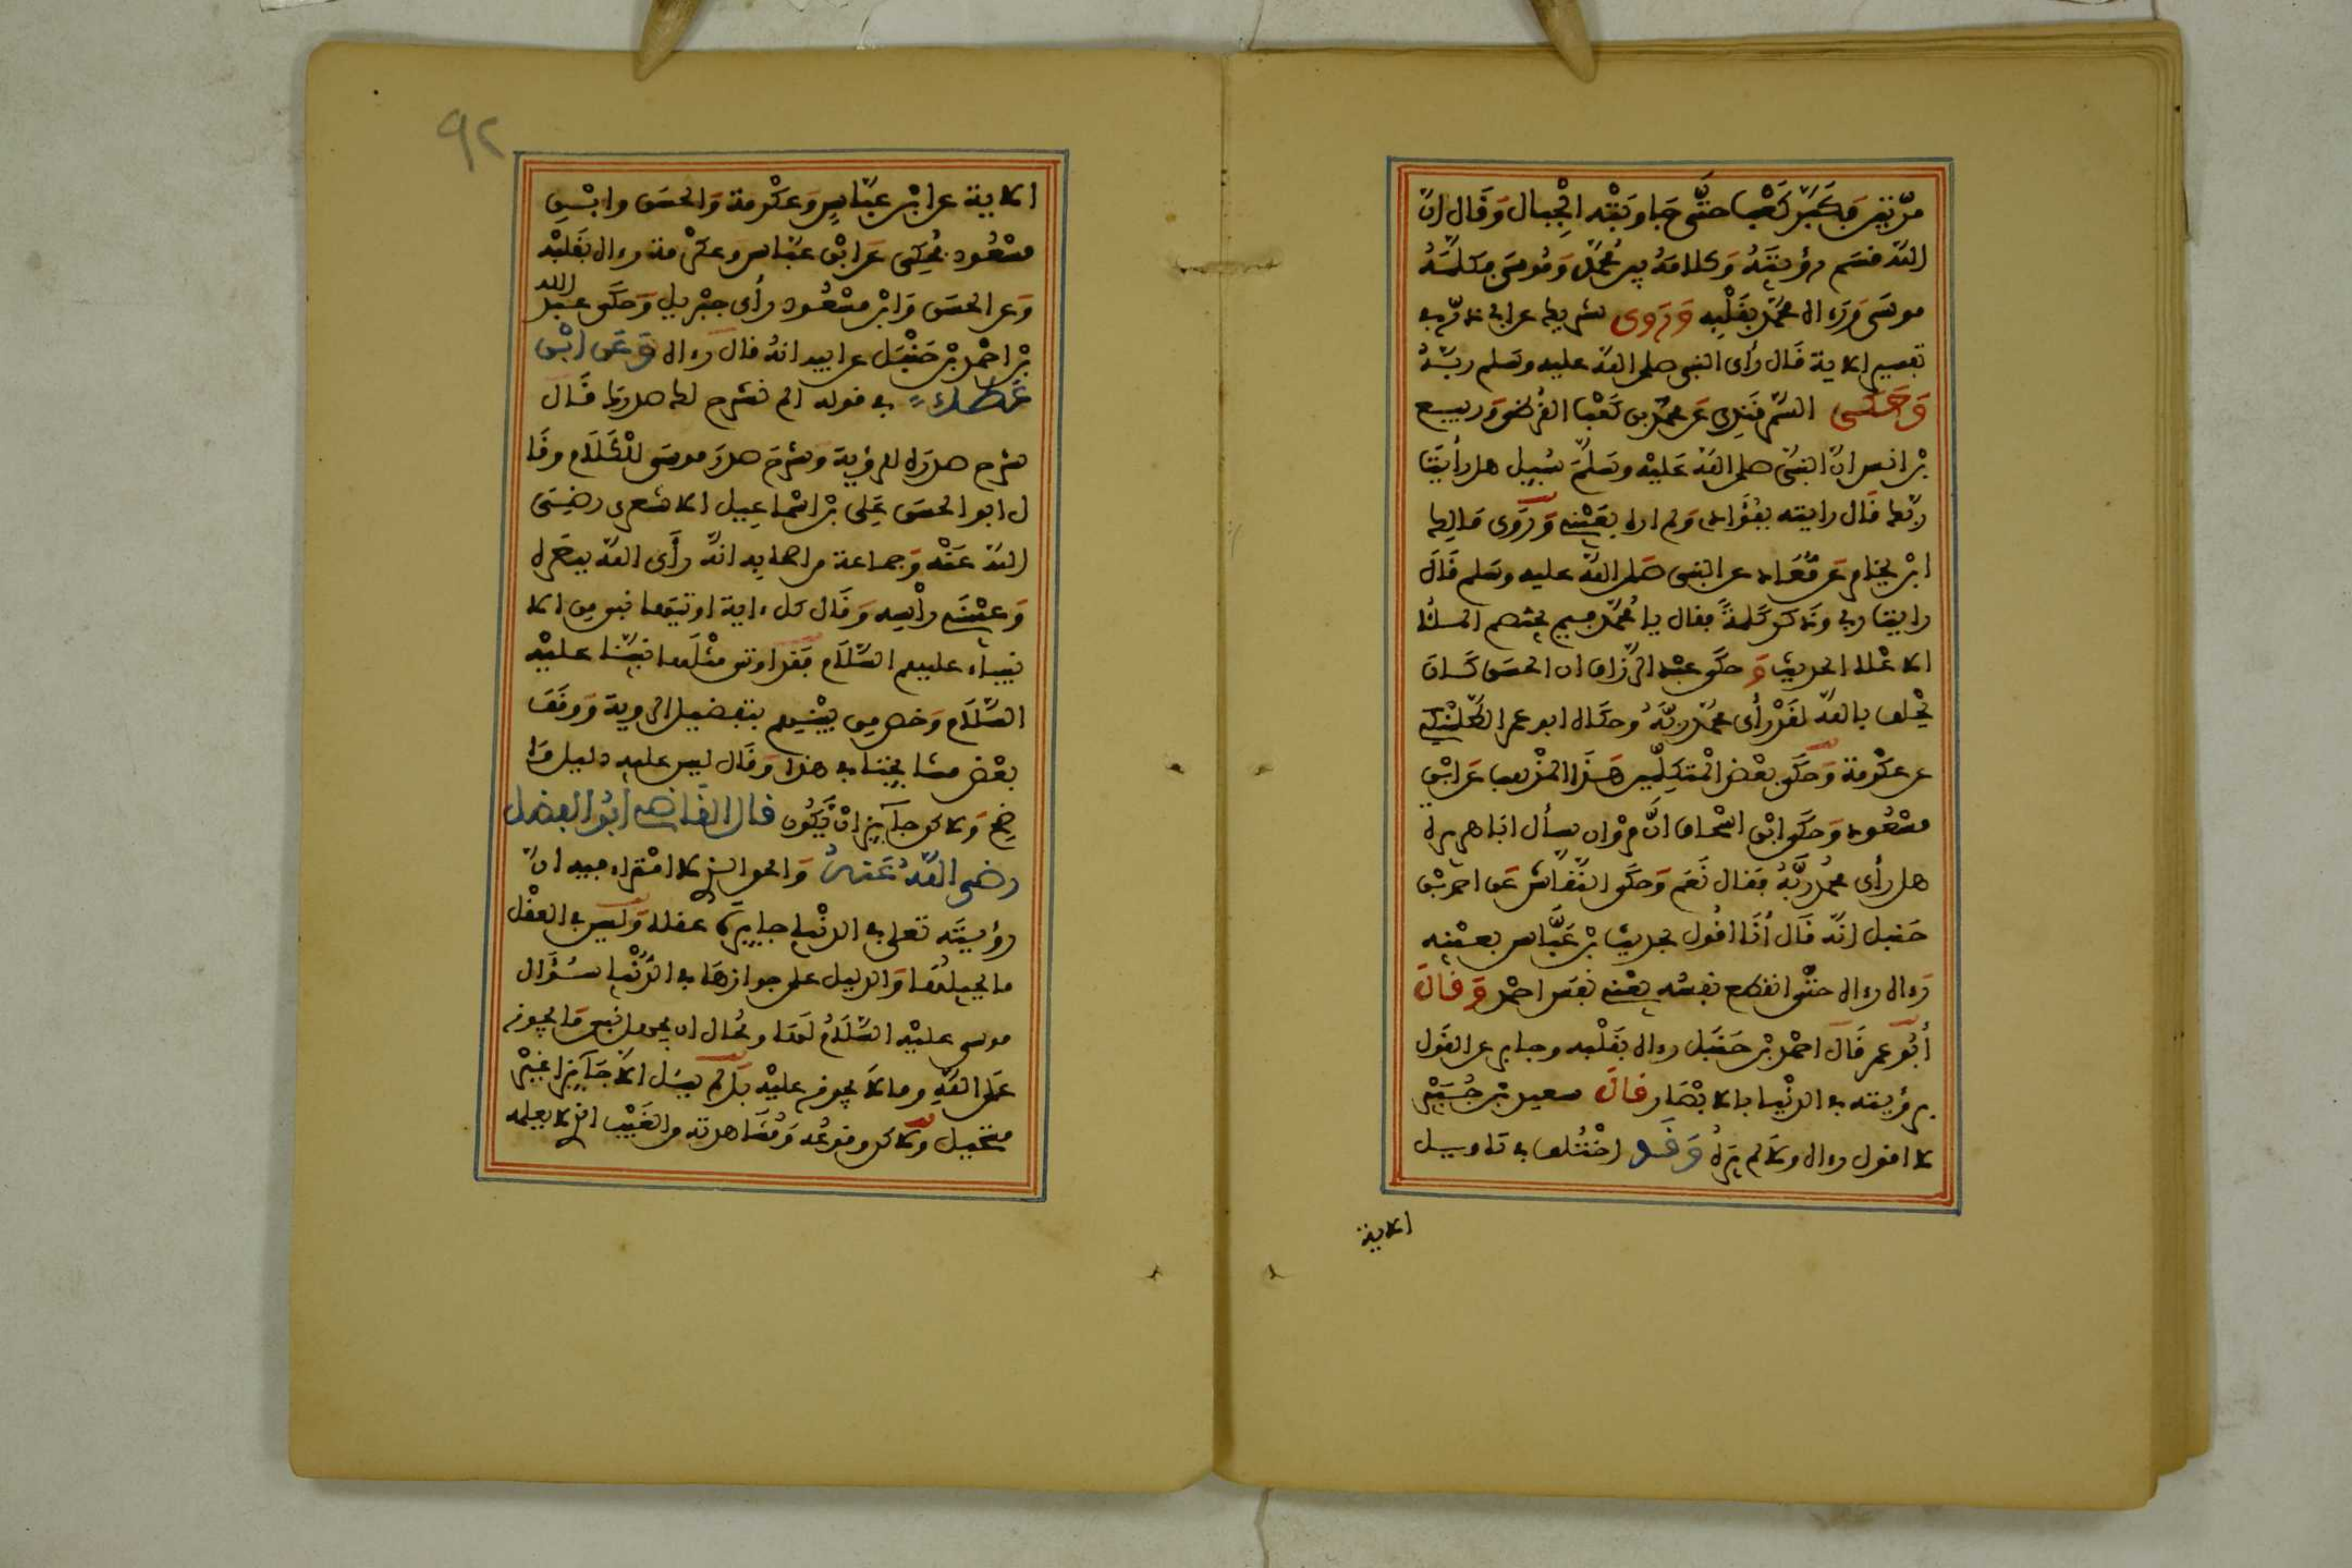 مرّتين فكَبّر كَعْب حتّى جاوبَتْه الْجبال وَقَال انّ
اللّه قسَم رؤيتَهُ وكلامَهُ بين مُحمّد وَمُوسَى فكلّمَهُ
موسَى وَرَءاه محمّد بقَلْبِه وَرَوى شريك عن ابي ذرّ في
تفسير الاية قَال رأى النبي صلى اللّه عليه وسَلم ربّهُ
وَحَكى السّمرقندي عَن محمّد بن كَعْب القُرظي وَربيع
بْن انس انّ النبيّ صلى اللّه عَليْه وسَلّمَ سُيِل هل رأيْتَ
ربّك قَال رايته بفُؤَادي وَلم اره بعَيْني وَرَوَى مَالِك
ابْن يخامر عَن مُعَاذ عن النبي صَلى اللّه عليه وسَلم قَالَ
رايت ربي وذكر كَلمةً فقال يا مُحمّد فيم يختصم الملأ
الاعْلا الحديث وَحكَى عبْد الرّزاق ان الحسَن كَانَ
يَحْلف باللّه لقَدْ رأى محمّد ربّهُ وحكَاه ابو عمر الطّلمنكي
عن عكْرمة وَحكَى بعْض المْتكلّمين هَذَا المذْهب عَن ابْن
مسْعُود وَحكَى ابْن اسْحاق انَّ مرْوان سأل ابَا هريرة
هل رأى محمّد ربَّهُ فقال نَعَم وَحكَى النّقّاش عَن احمد بْن
حَنبل انّه قَال أنَا اقُول بحديث بْن عَبَّاس بعيْنه
رَءاه رءاه حتّى انقطع نفسُه يعْني نفَس احمد وَقَالَ
أبُو عمر قَالَ احمْد بْن حَنبَل رءاه بقَلْبه وجبن عن القَول
برؤيته في الدنْيا بالابْصَار قَالَ سعيد بْن جُبَيْر
لا اقول رءاه وَلا لم يَرَهُ وَقَد اخْتُلف في تَاويل
الاية
٩٢
الاية عن ابْن عبّاس وَعكْرمة وَالحسَن وابْنِ
مسْعُود فحُكي عَن ابْن عبّاس وَعكْرمة رءاه بقَلبْه
وَعن الحسَن وَابْن مسْعُود رأى جبْريل وَحكَى عبد الله
بْن احمْد بْن حَنْبَل عن ابيه انهُ قالَ رءاه وَعَن ابْن
عَطَاء في قوله الم نشرح لك صدرك قَالَ
شرح صدرَه للرؤية وَشرحَ صدرَ موسَى للْكَلَام وقَا
ل ابو الحسَن عَلي بْن اسْماعيل الاشعري رضيَ
اللّه عَنْه وَجماعة من اصحابه انّه رأَى اللّه ببصَره
وَعيْنَي رأْسه وَقَال كل ءاية اوتيَها نبي من الا
نبيآء عليهم السَّلَام فقد اوتي مثْلَها نبيّنا عليْه
السَّلَام وَخص من بيْنهم بتفضيل الروية وَوقَفَ
بعْض مشايخنا في هذا وَقَال ليس عليه دليل وَا
ضح وَلاكن جآيز انْ يّكُون قَال القَاضي أبُو الفضل
رضي اللّهُ عَنهُ وَالحق الذي لا امْتراء فيه انّ
رؤيتَه تعلى في الدنْيا جايزة عقلا وَليس في العقْل
ما يحيلُها وَالدليل على جوازهَا في الدُّنْيا سُؤَال
موسى عليْه السَّلَامُ لَهَا ومُحَال ان يجهل نبي مَا يجوز
عَلى اللّهِ وما لَا يجوز عليْه بَل لم يسَل الا جَآيزا غيْر
مستحيل وَلاكن وقوعُه وَمُشَاهدته من الغَيْب الذي لا يعلمه